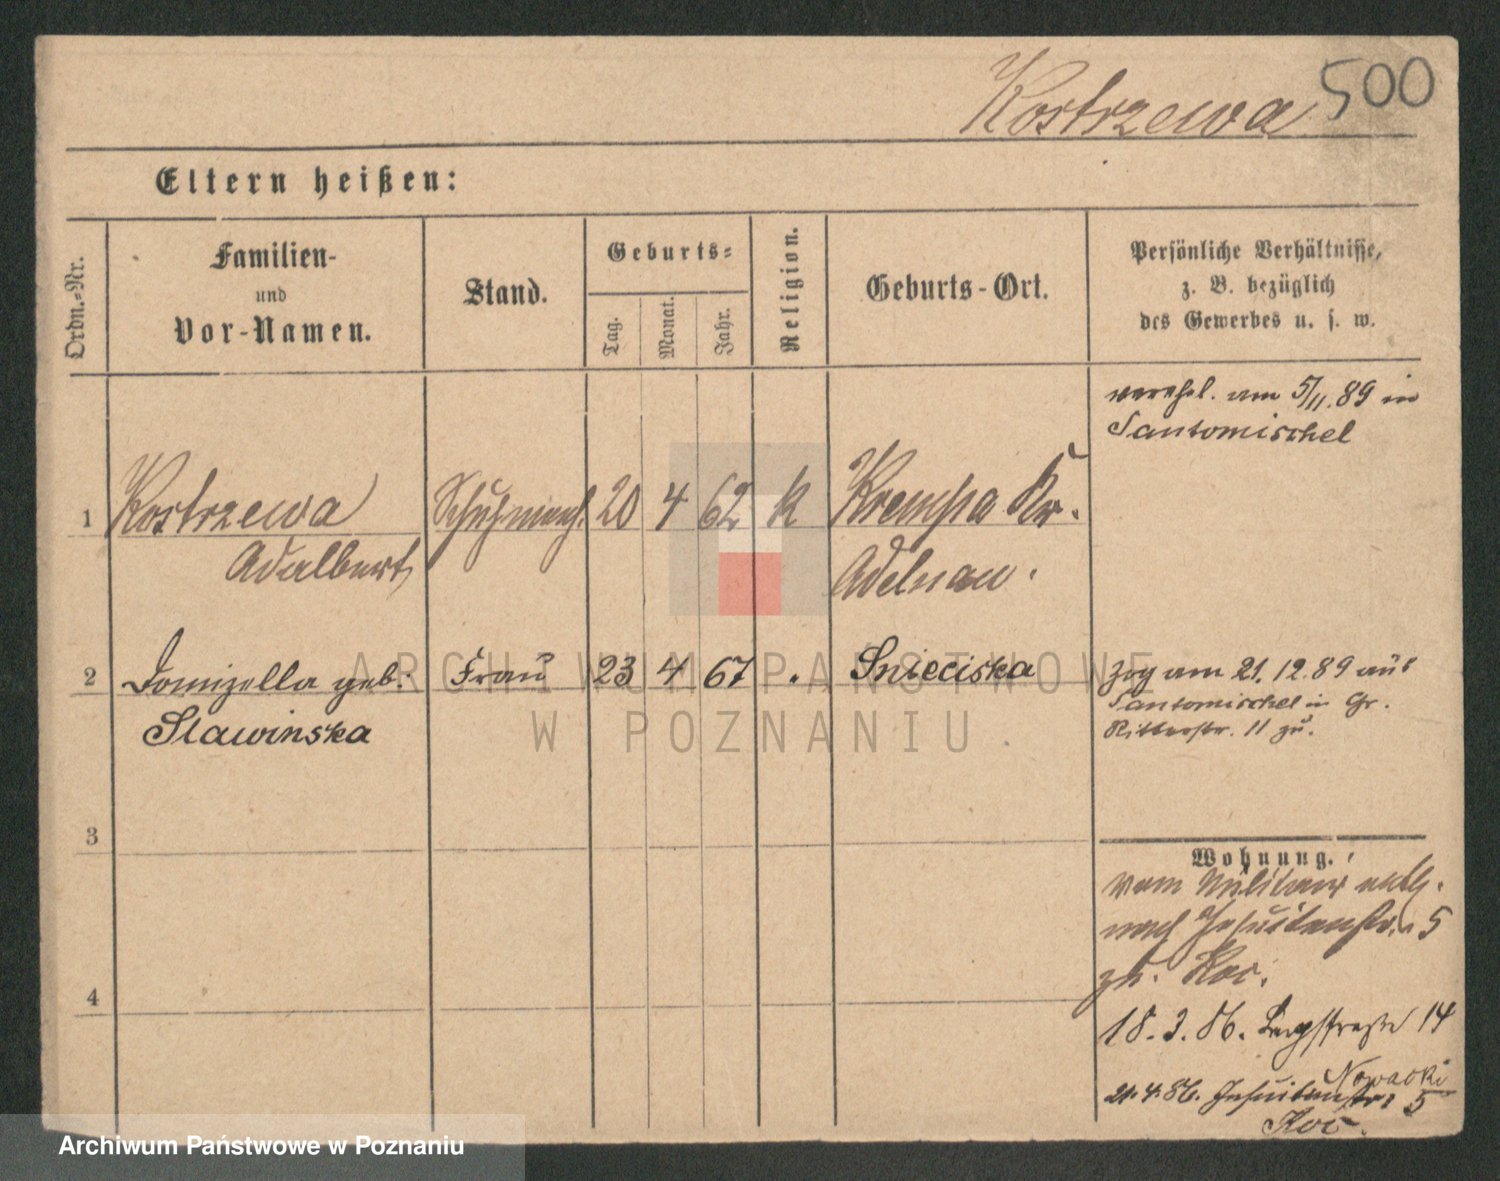 Kostrzewa 500
Eltern heißen:
Ordn.-Nr.
Familien-
und
Vor-Namen.
Stand.
Geburts-
Tag.
Monat.
Jahr.
Religion.
Geburts-Ort.
Persönliche Verhältnisse,
z. B. bezüglich
des Gewerbes u. s. w.
verehel. am 5/11.89 in
Santomischel
1 Kostrzewa Schuhmach. 20 4 62 k Krempa Kr.
Adalbert Adelnau.
2 Domizella geb. Frau 23 4 67 . Snieciska zog am 21.12.89 aus
Slawinska Santomischel in Gr.
Ritterstr. 11 zu.
3
4
Wohnung.
vom Militair entl.
nach Jesuitenstr. 5
zu. Koc.
18.3.86. Bergstraße 14
Nowacki
21.4.86. Jesuitenstr. 5
Koc.
ARCHIWUM PAŃSTWOWE
W POZNANIU
Archiwum Państwowe w Poznaniu